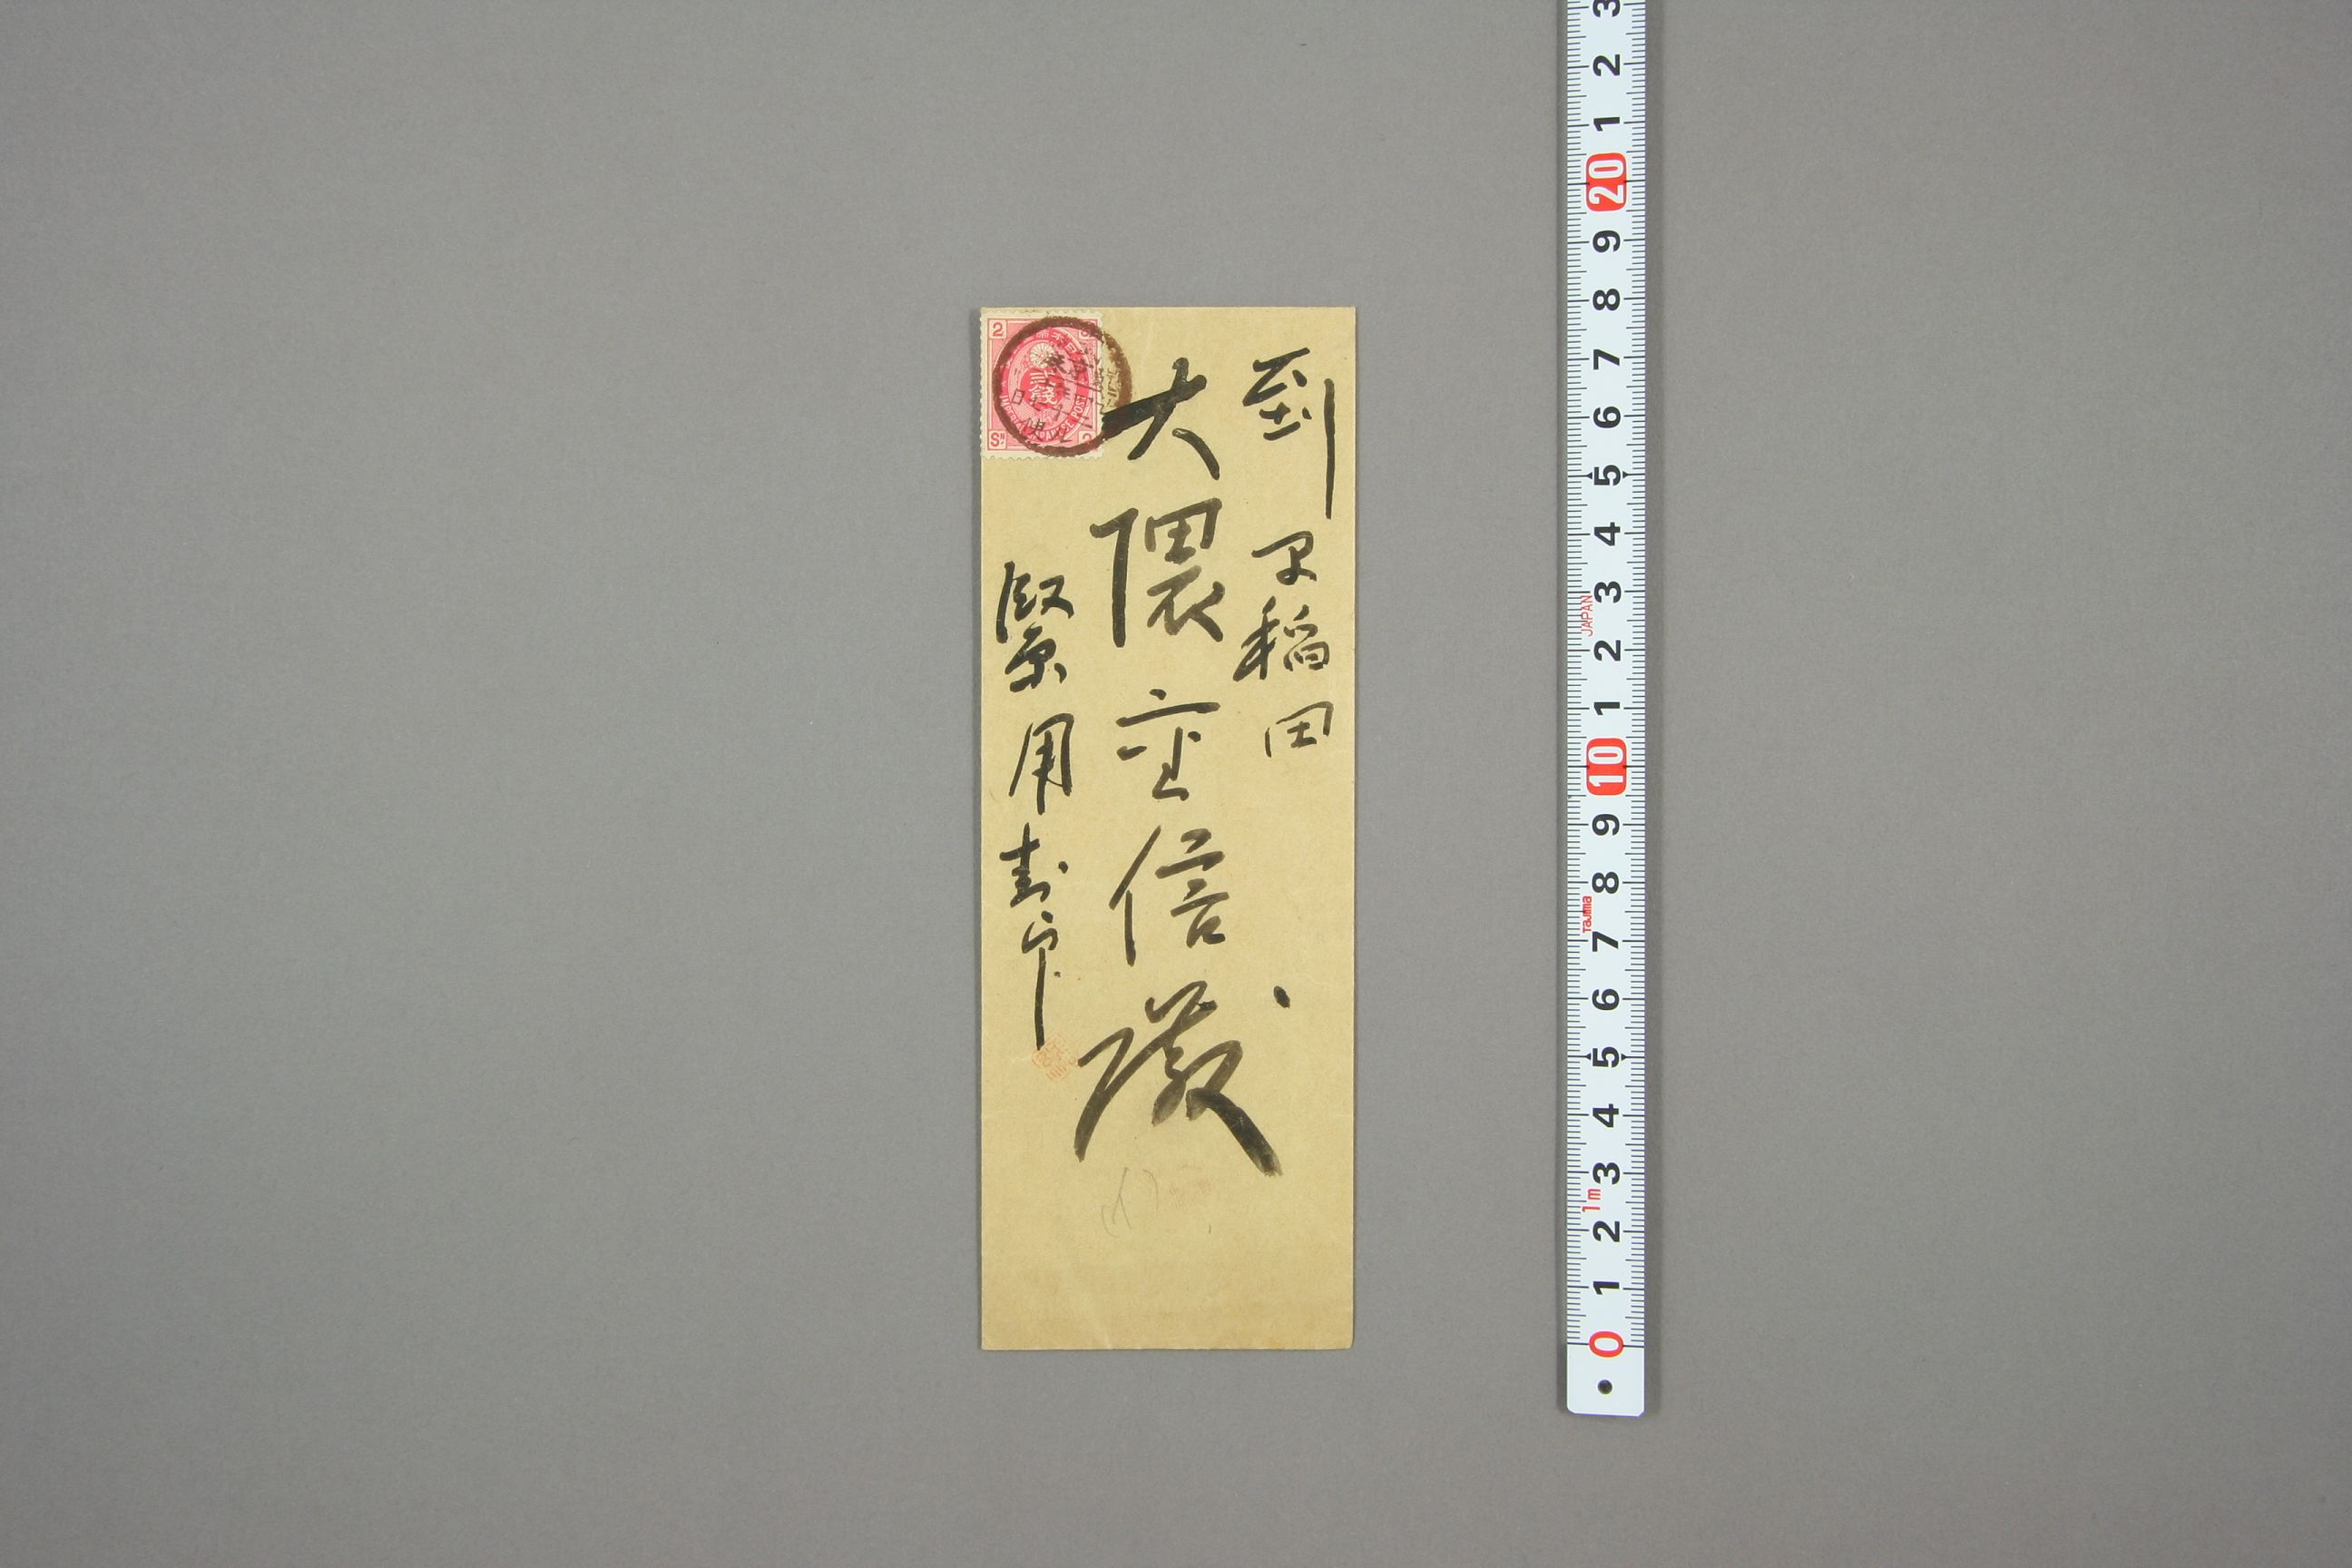 到 早稲田
大隈重信殿
緊用書印
2
貳錢
Sn
JAPANESE POST
3
2
1
20
9
8
7
6
5
4
3
JAPAN
2
1
10
9
8
Tajima
7
6
5
4
3
1m
2
1
0